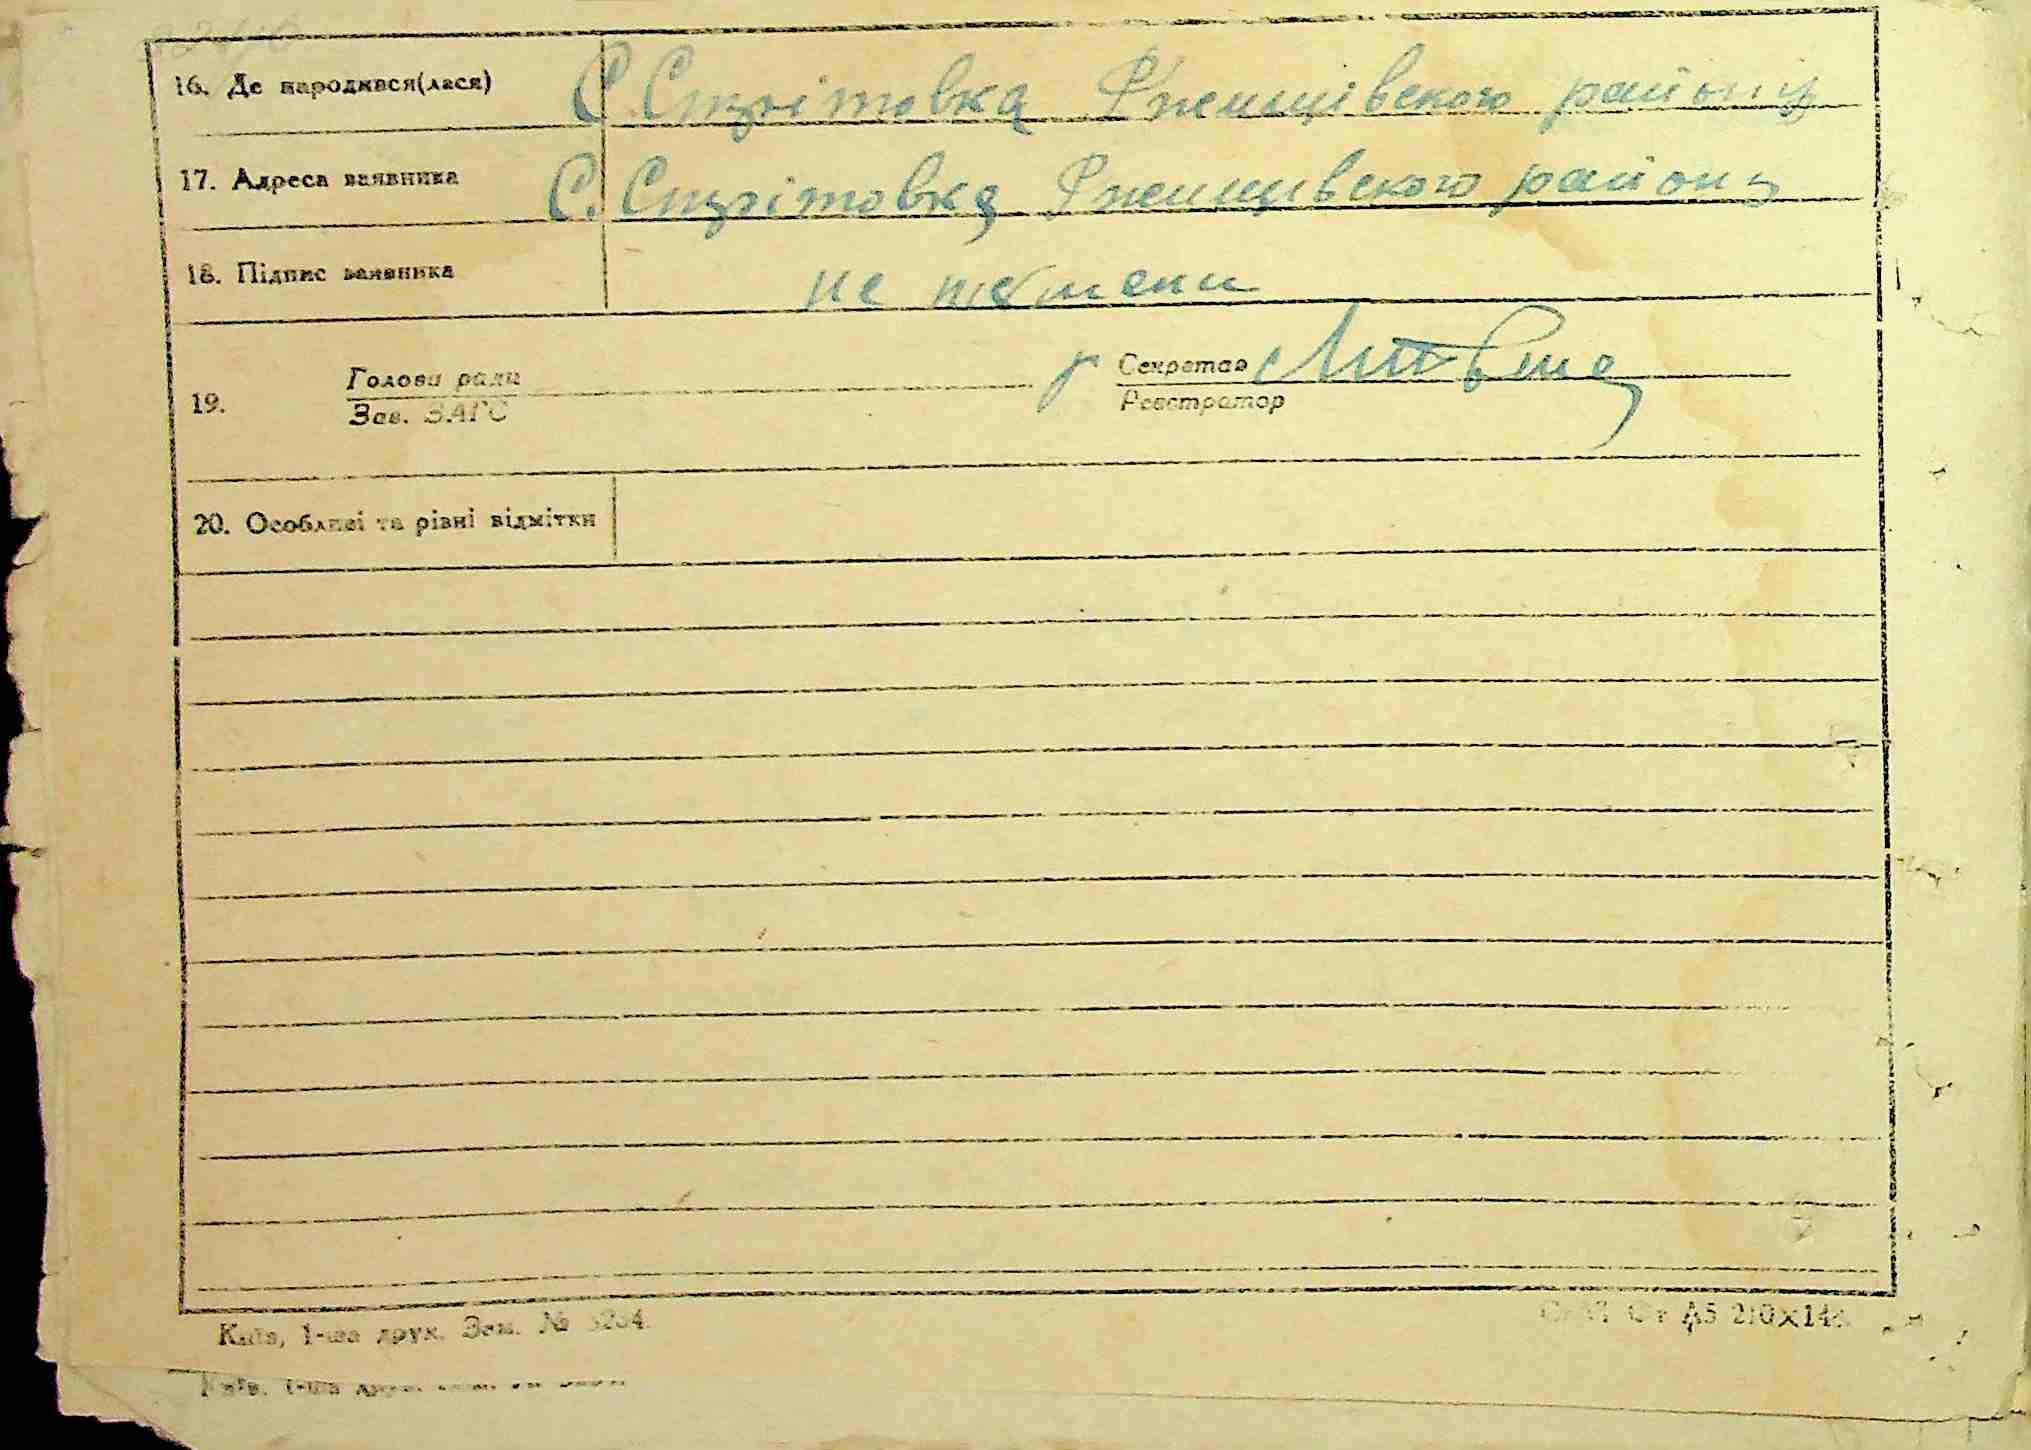 16. Де народився(лася) С. Стрітовка Ржищівского району
17. Адреса заявника С. Стрітовка Ржищивского району
18. Підпис заявника не
19. Голова ради Секретар
Зав. ЗАГС Реєстратор
20. Особливі та різні відмітки
Київ, 1-ша друк. Зам. № А5 210×148
Київ, 1-ша друк.